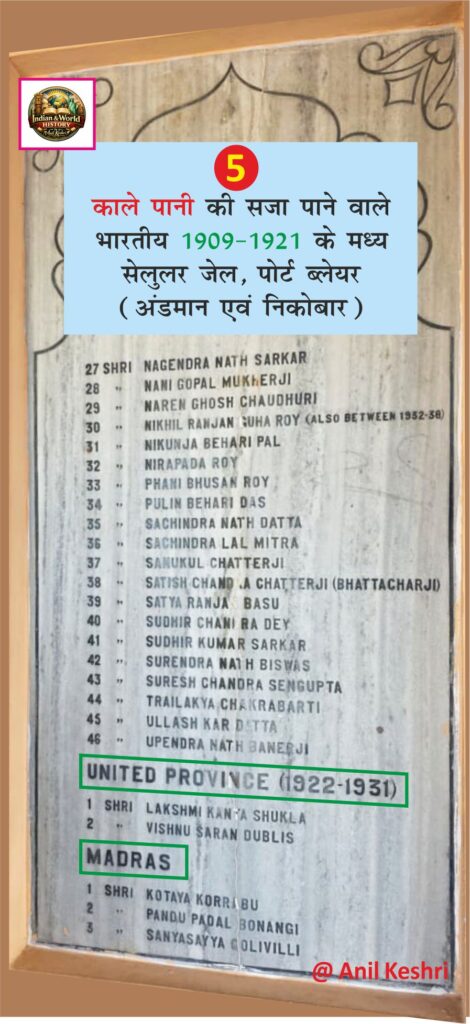 Indian & World
HISTORY
Anil Keshri
5
काले पानी की सजा पाने वाले
भारतीय 1909-1921 के मध्य
सेलुलर जेल, पोर्ट ब्लेयर
(अंडमान एवं निकोबार)
27 SHRI NAGENDRA NATH SARKAR
28 " NANI GOPAL MUKHERJI
29 " NAREN GHOSH CHAUDHURI
30 " NIKHIL RANJAN GUHA ROY (ALSO BETWEEN 1932-38)
31 " NIKUNJA BEHARI PAL
32 " NIRAPADA ROY
33 " PHANI BHUSAN ROY
34 " PULIN BEHARI DAS
35 " SACHINDRA NATH DATTA
36 " SACHINDRA LAL MITRA
37 " SANUKUL CHATTERJI
38 " SATISH CHAND A CHATTERJI (BHATTACHARJI)
39 " SATYA RANJA BASU
40 " SUDHIR CHAN RA DEY
41 " SUDHIR KUMAR SARKAR
42 " SURENDRA NATH BISWAS
43 " SURESH CHANDRA SENGUPTA
44 " TRAILAKYA CHAKRABARTI
45 " ULLASH KAR DATTA
46 " UPENDRA NATH BANERJI
UNITED PROVINCE (1922-1931)
1 SHRI LAKSHMI KAN A SHUKLA
2 " VISHNU SARAN DUBLIS
MADRAS
1 SHRI KOTAYA KORRABU
2 " PANDU PADAL BONANGI
3 " SANYASAYYA GOLIVILLI
@ Anil Keshri